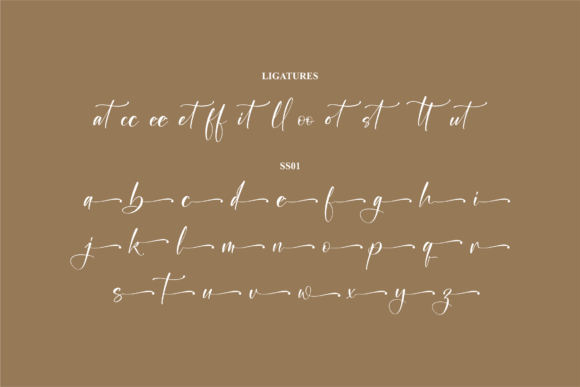 LIGATURES
at cc ee et ff it ll oo ot st tt ut
SS01
a b c d e f g h i
j k l m n o p q r
s t u v w x y z